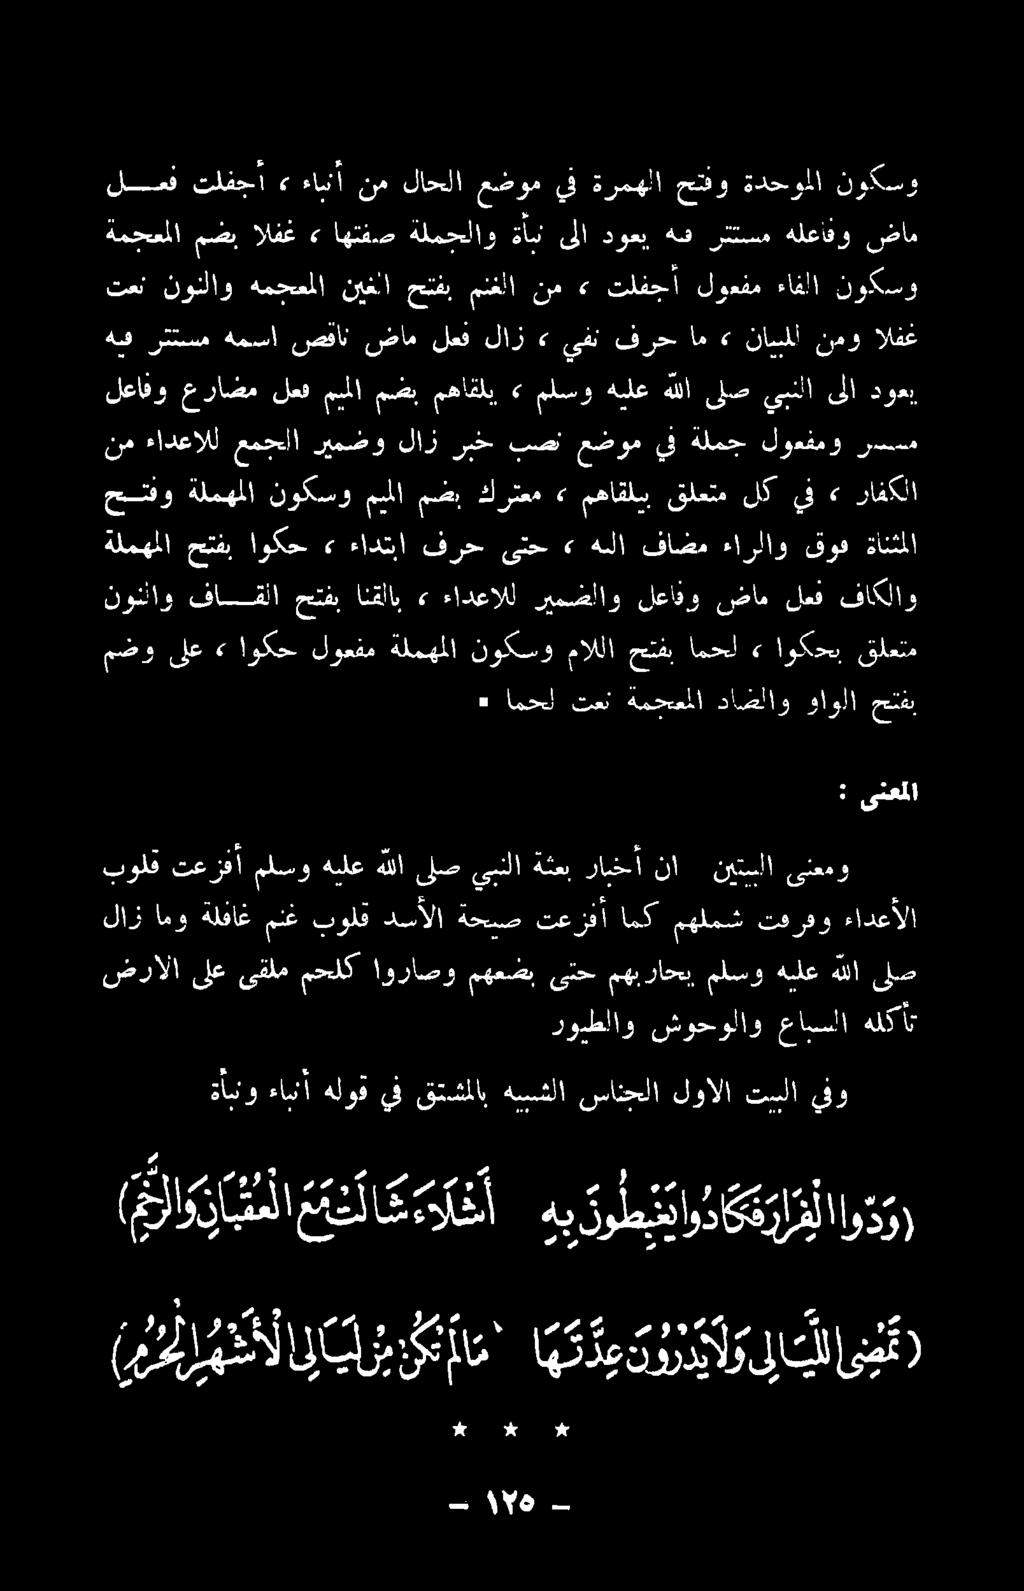 وسكون الموحدة وفتح الهمزة في موضع الحال من أنباء ، أجفلت فعــل
ماض وفاعله مستتر فيه يعود الى نبأة والجملة صفتها ، غفلا بضم المعجمة
وسكون الفاء مفعول أجفلت ، من الغنم بفتح الغين المعجمه والنون نعت
غفلا ومن للبيان ، ما حرف نفي ، زال فعل ماض ناقص اسمه مستتر فيه
يعود الى النبي صلى الله عليه وسلم ، يلقاهم بضم الميم فعل مضارع وفاعل
مستتر ومفعول جملة في موضع نصب خبر زال وضمير الجمع للاعداء من
الكفار ، في كل متعلق بيلقاهم ، معترك بضم الميم وسكون المهملة وفتــح
المثناة فوق والراء مضاف اليه ، حتى حرف ابتداء ، حكوا بفتح المهملة
والكاف فعل ماض وفاعل والضمير للاعداء ، بالقنا بفتح القــاف والنون
متعلق بحكوا ، لحما بفتح اللام وسكون المهملة مفعول حكوا ، على وضم
بفتح الواو والضاد المعجمة نعت لحما ▪
المعنى :
ومعنى البيتين ان أخبار بعثة النبي صلى الله عليه وسلم أفزعت قلوب
الأعداء وفرقت شملهم كما أفزعت صيحة الأسد قلوب غنم غافلة وما زال
صلى الله عليه وسلم يحاربهم حتى بعضهم وصاروا كلحم ملقى على الارض
تأكله السباع والوحوش والطيور
وفي البيت الاول الجناس الشبيه بالمشتق في قوله أنباء ونبأة
(وَدُّوا الْفِرَارَ فَكَادُوا يَغْبِطُونَ بِهِ أَشْلَاءَ شَالَتْ مَعَ الْعُقْبَانِ وَالرَّخَمِ)
(تَمْضِي اللَّيَالِي وَلَا يَدْرُونَ عِدَّتَهَا مَا لَمْ تَكُنْ مِنْ لَيَالِي الْأَشْهُرِ الْحُرُمِ)
* * *
– ١٢٥ –